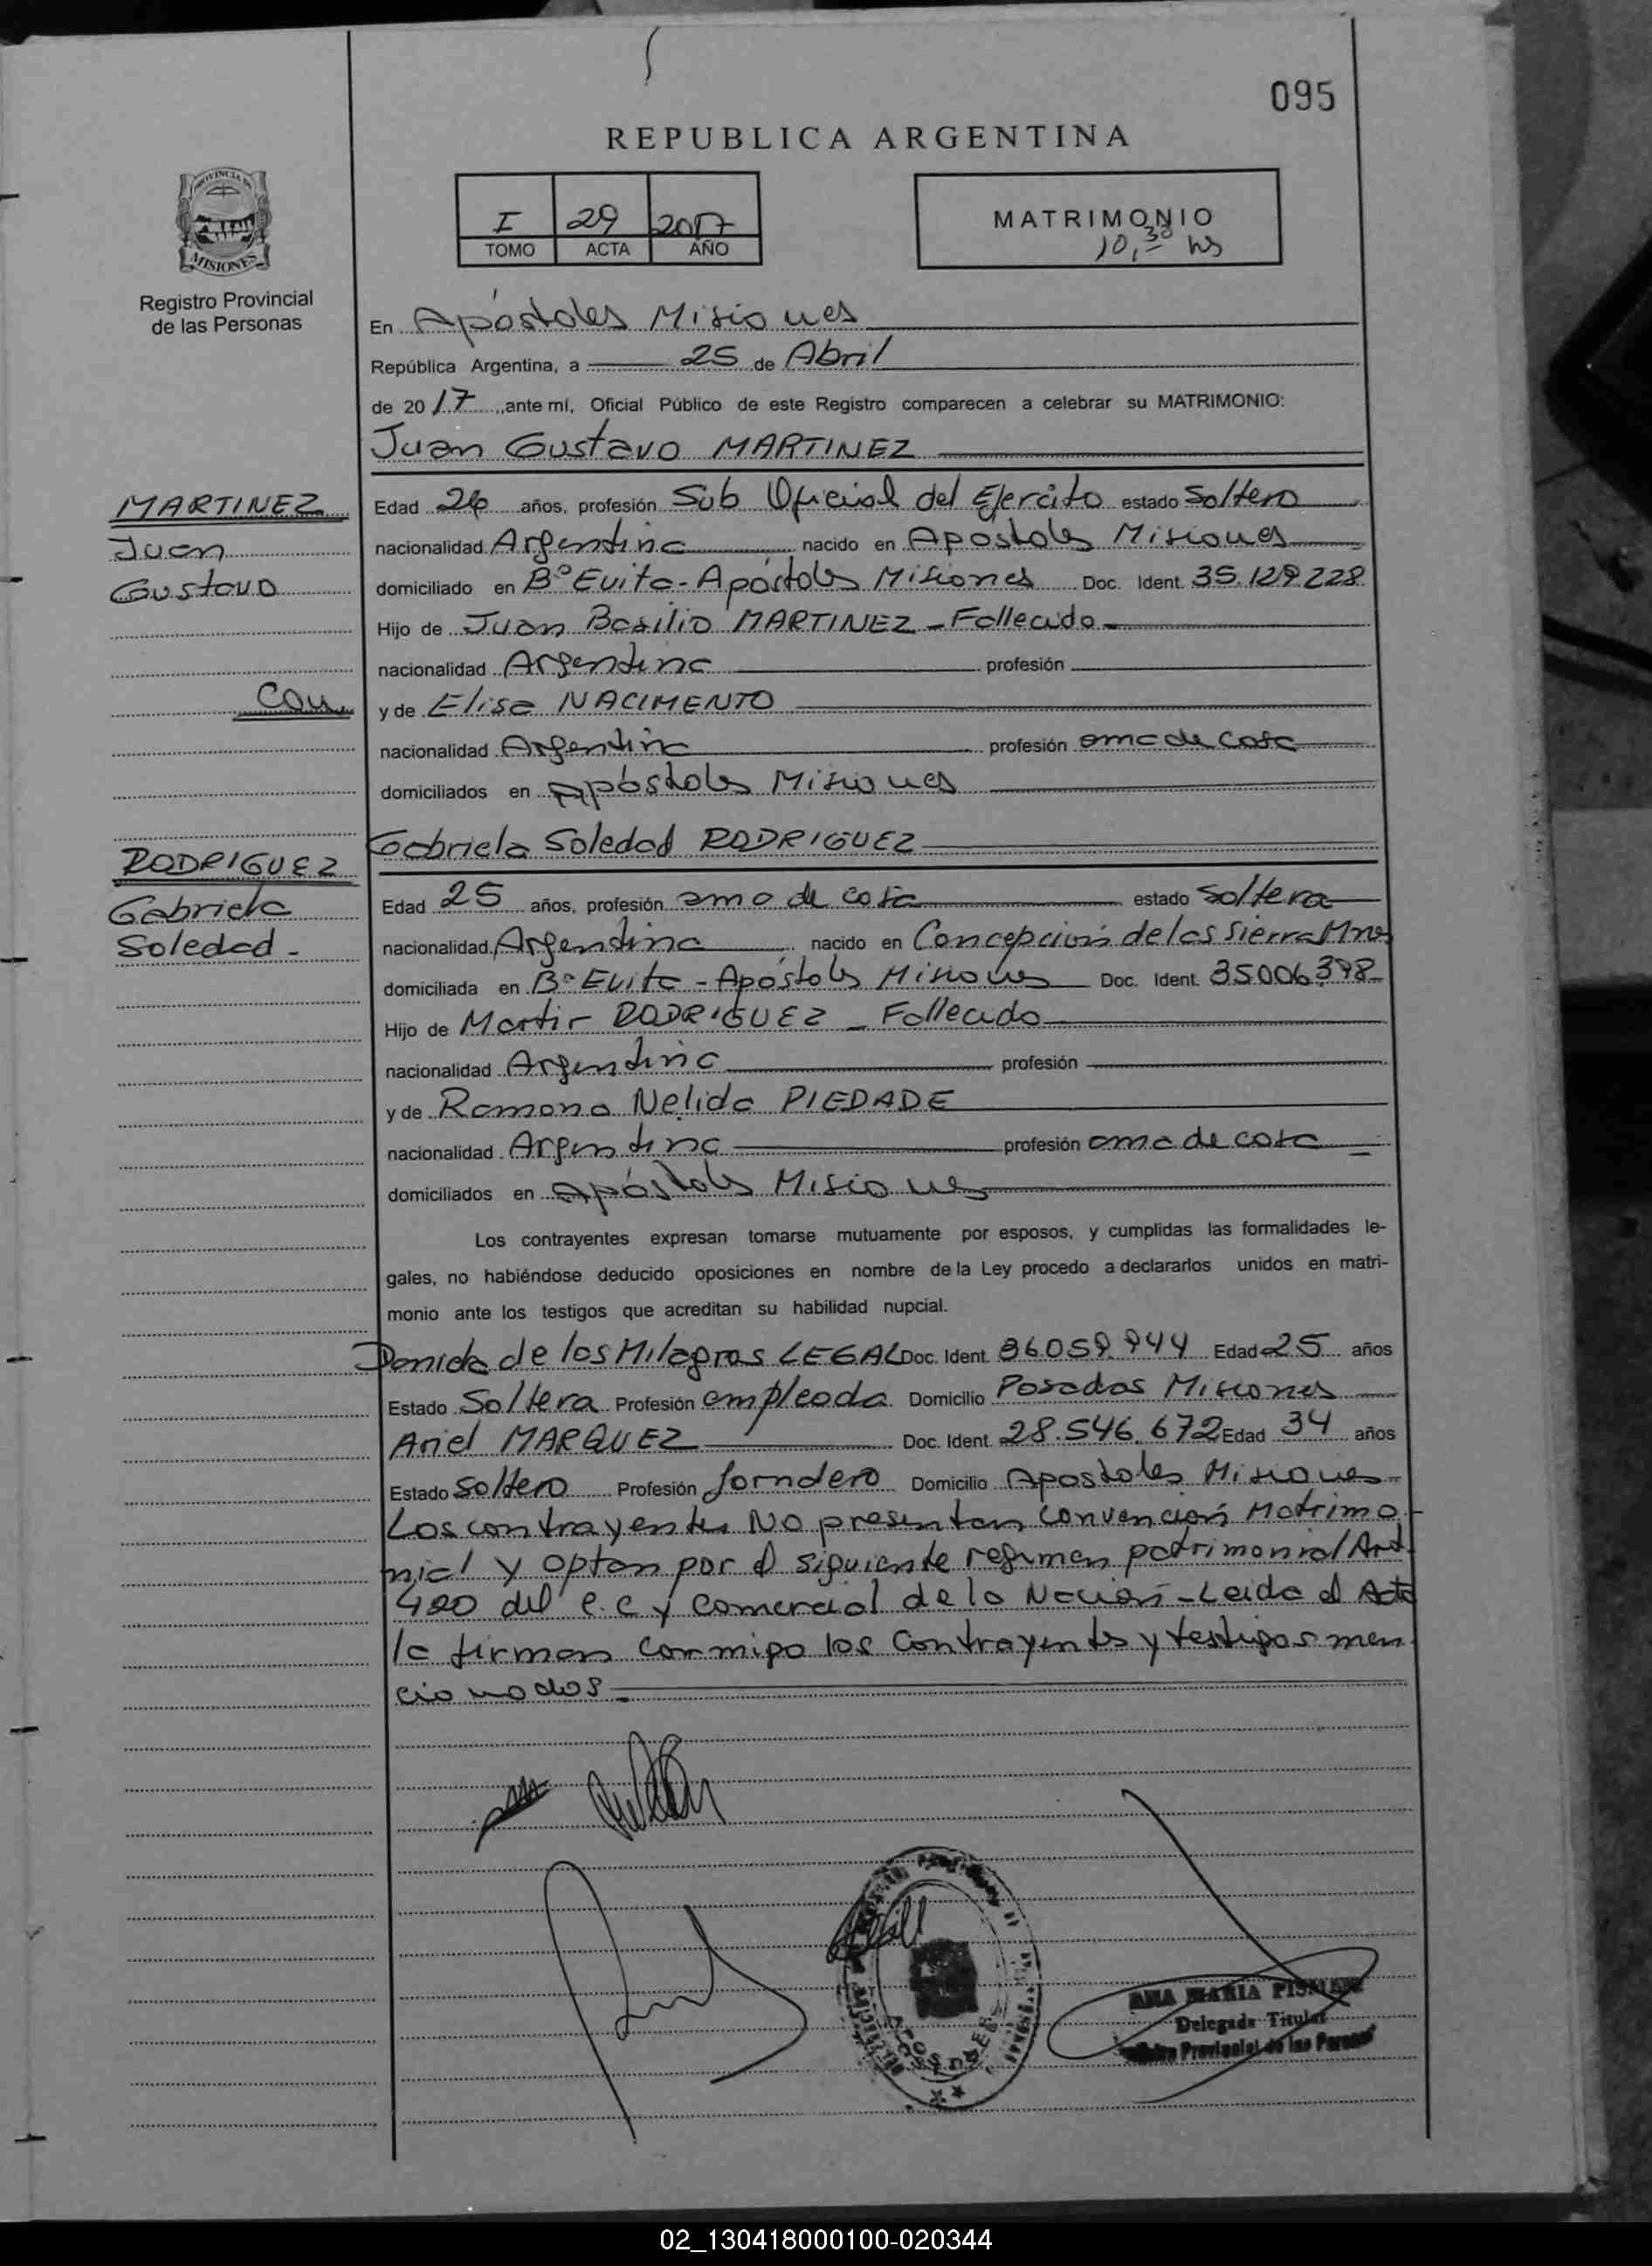 095
REPUBLICA ARGENTINA
PROVINCIA DE
MISIONES
Registro Provincial
de las Personas
I 29 2017
TOMO ACTA AÑO
MATRIMONIO
10,30 hs
En Apóstoles Misiones
República Argentina, a 25 de Abril
de 2017, ante mí, Oficial Público de este Registro comparecen a celebrar su MATRIMONIO:
Juan Gustavo MARTINEZ
MARTINEZ
Juan
Gustavo
Edad años, profesión Sub Oficial del Ejercito estado Soltero
nacionalidad Argentina nacido en Apostoles Misiones
domiciliado en Bº Evita - Apóstoles Misiones Doc. Ident. 35.129.228
Hijo de Juan Basilio MARTINEZ - Fallecido -
nacionalidad Argentina profesión
con
y de Elisa NACIMENTO
nacionalidad Argentina profesión ama de casa
domiciliados en Apóstoles Misiones
Gabriela Soledad RODRIGUEZ
RODRIGUEZ
Gabriela
Soledad -
Edad 25 años, profesión ama de casa estado Soltera
nacionalidad Argentina nacido en Concepción de las Sierra Mnes
domiciliada en Bº Evita - Apóstoles Misiones Doc. Ident. 35006398
Hijo de Martir RODRIGUEZ - Fallecido
nacionalidad Argentina profesión
y de Ramona Nelida PIEDADE
nacionalidad Argentina profesión ama de casa
domiciliados en Apóstoles Misiones
Los contrayentes expresan tomarse mutuamente por esposos, y cumplidas las formalidades le-
gales, no habiéndose deducido oposiciones en nombre de la Ley procedo a declararlos unidos en matri-
monio ante los testigos que acreditan su habilidad nupcial.
de los Milagros LEGAL Doc. Ident. 36.059.944 Edad 25 años
Estado Soltera Profesión empleada Domicilio Posadas Misiones
Ariel MARQUEZ Doc. Ident. 28.546.672 Edad 34 años
Estado Soltero Profesión Jornalero Domicilio Apostoles Misiones
Los contrayentes No presentan convención Matrimo-
nial y optan por el siguiente regimen patrimonial Art.
420 del C.C y Comercial de la Nación - Leida el Acta
la firman conmigo los Contrayentes y testigos men
cionados.
ANA MARIA
Delegada Titular
Provincial de las Personas
02_130418000100-020344